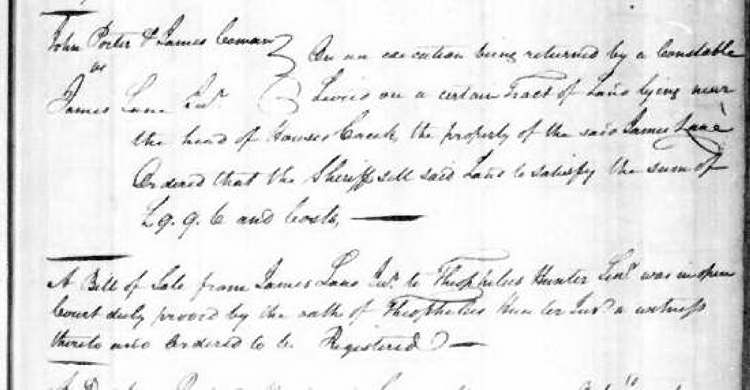 John Porter & James Coman } On an execution being returned by a Constable
vs
James Lane Junr. } Levied on a certain Tract of Land lying near
the head of Houses Creek, the property of the said James Lane
Ordered that the Sheriff sell said Land to satisfy the sum of
£9.9.6 and Costs, —
A Bill of Sale from James Lane Junr. to Theophilus Hunter Senr. was in open
Court duly proved by the oath of Theophilus Hunter Junr. a witness
thereto and Ordered to be Registered —